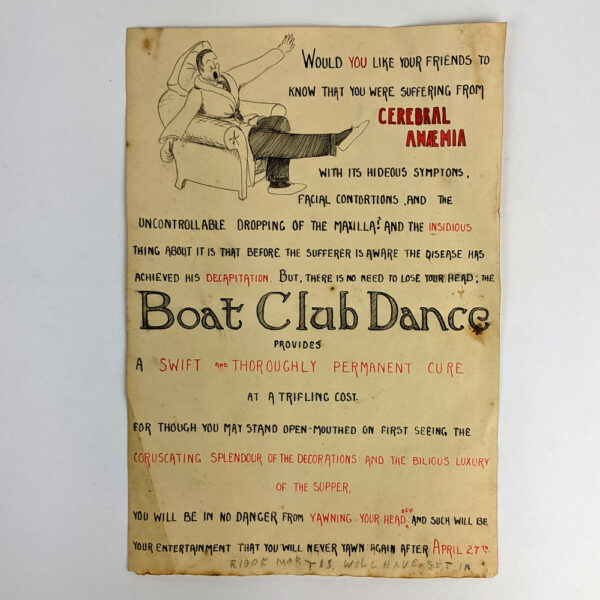 WOULD YOU LIKE YOUR FRIENDS TO
KNOW THAT YOU WERE SUFFERING FROM
CEREBRAL
ANÆMIA
WITH ITS HIDEOUS SYMPTONS,
FACIAL CONTORTIONS, AND THE
UNCONTROLLABLE DROPPING OF THE MAXILLA? AND THE INSIDIOUS
THING ABOUT IT IS THAT BEFORE THE SUFFERER IS AWARE THE DISEASE HAS
ACHIEVED HIS DECAPITATION. BUT, THERE IS NO NEED TO LOSE YOUR HEAD; THE
Boat Club Dance
PROVIDES
A SWIFT AND THOROUGHLY PERMANENT CURE
AT A TRIFLING COST.
FOR THOUGH YOU MAY STAND OPEN-MOUTHED ON FIRST SEEING THE
CORUSCATING SPLENDOUR OF THE DECORATIONS AND THE BILIOUS LUXURY
OF THE SUPPER,
YOU WILL BE IN NO DANGER FROM YAWNING YOUR HEAD OFF; AND SUCH WILL BE
YOUR ENTERTAINMENT THAT YOU WILL NEVER YAWN AGAIN AFTER APRIL 27TH.
RIGOR MORTIS WILL HAVE SET IN